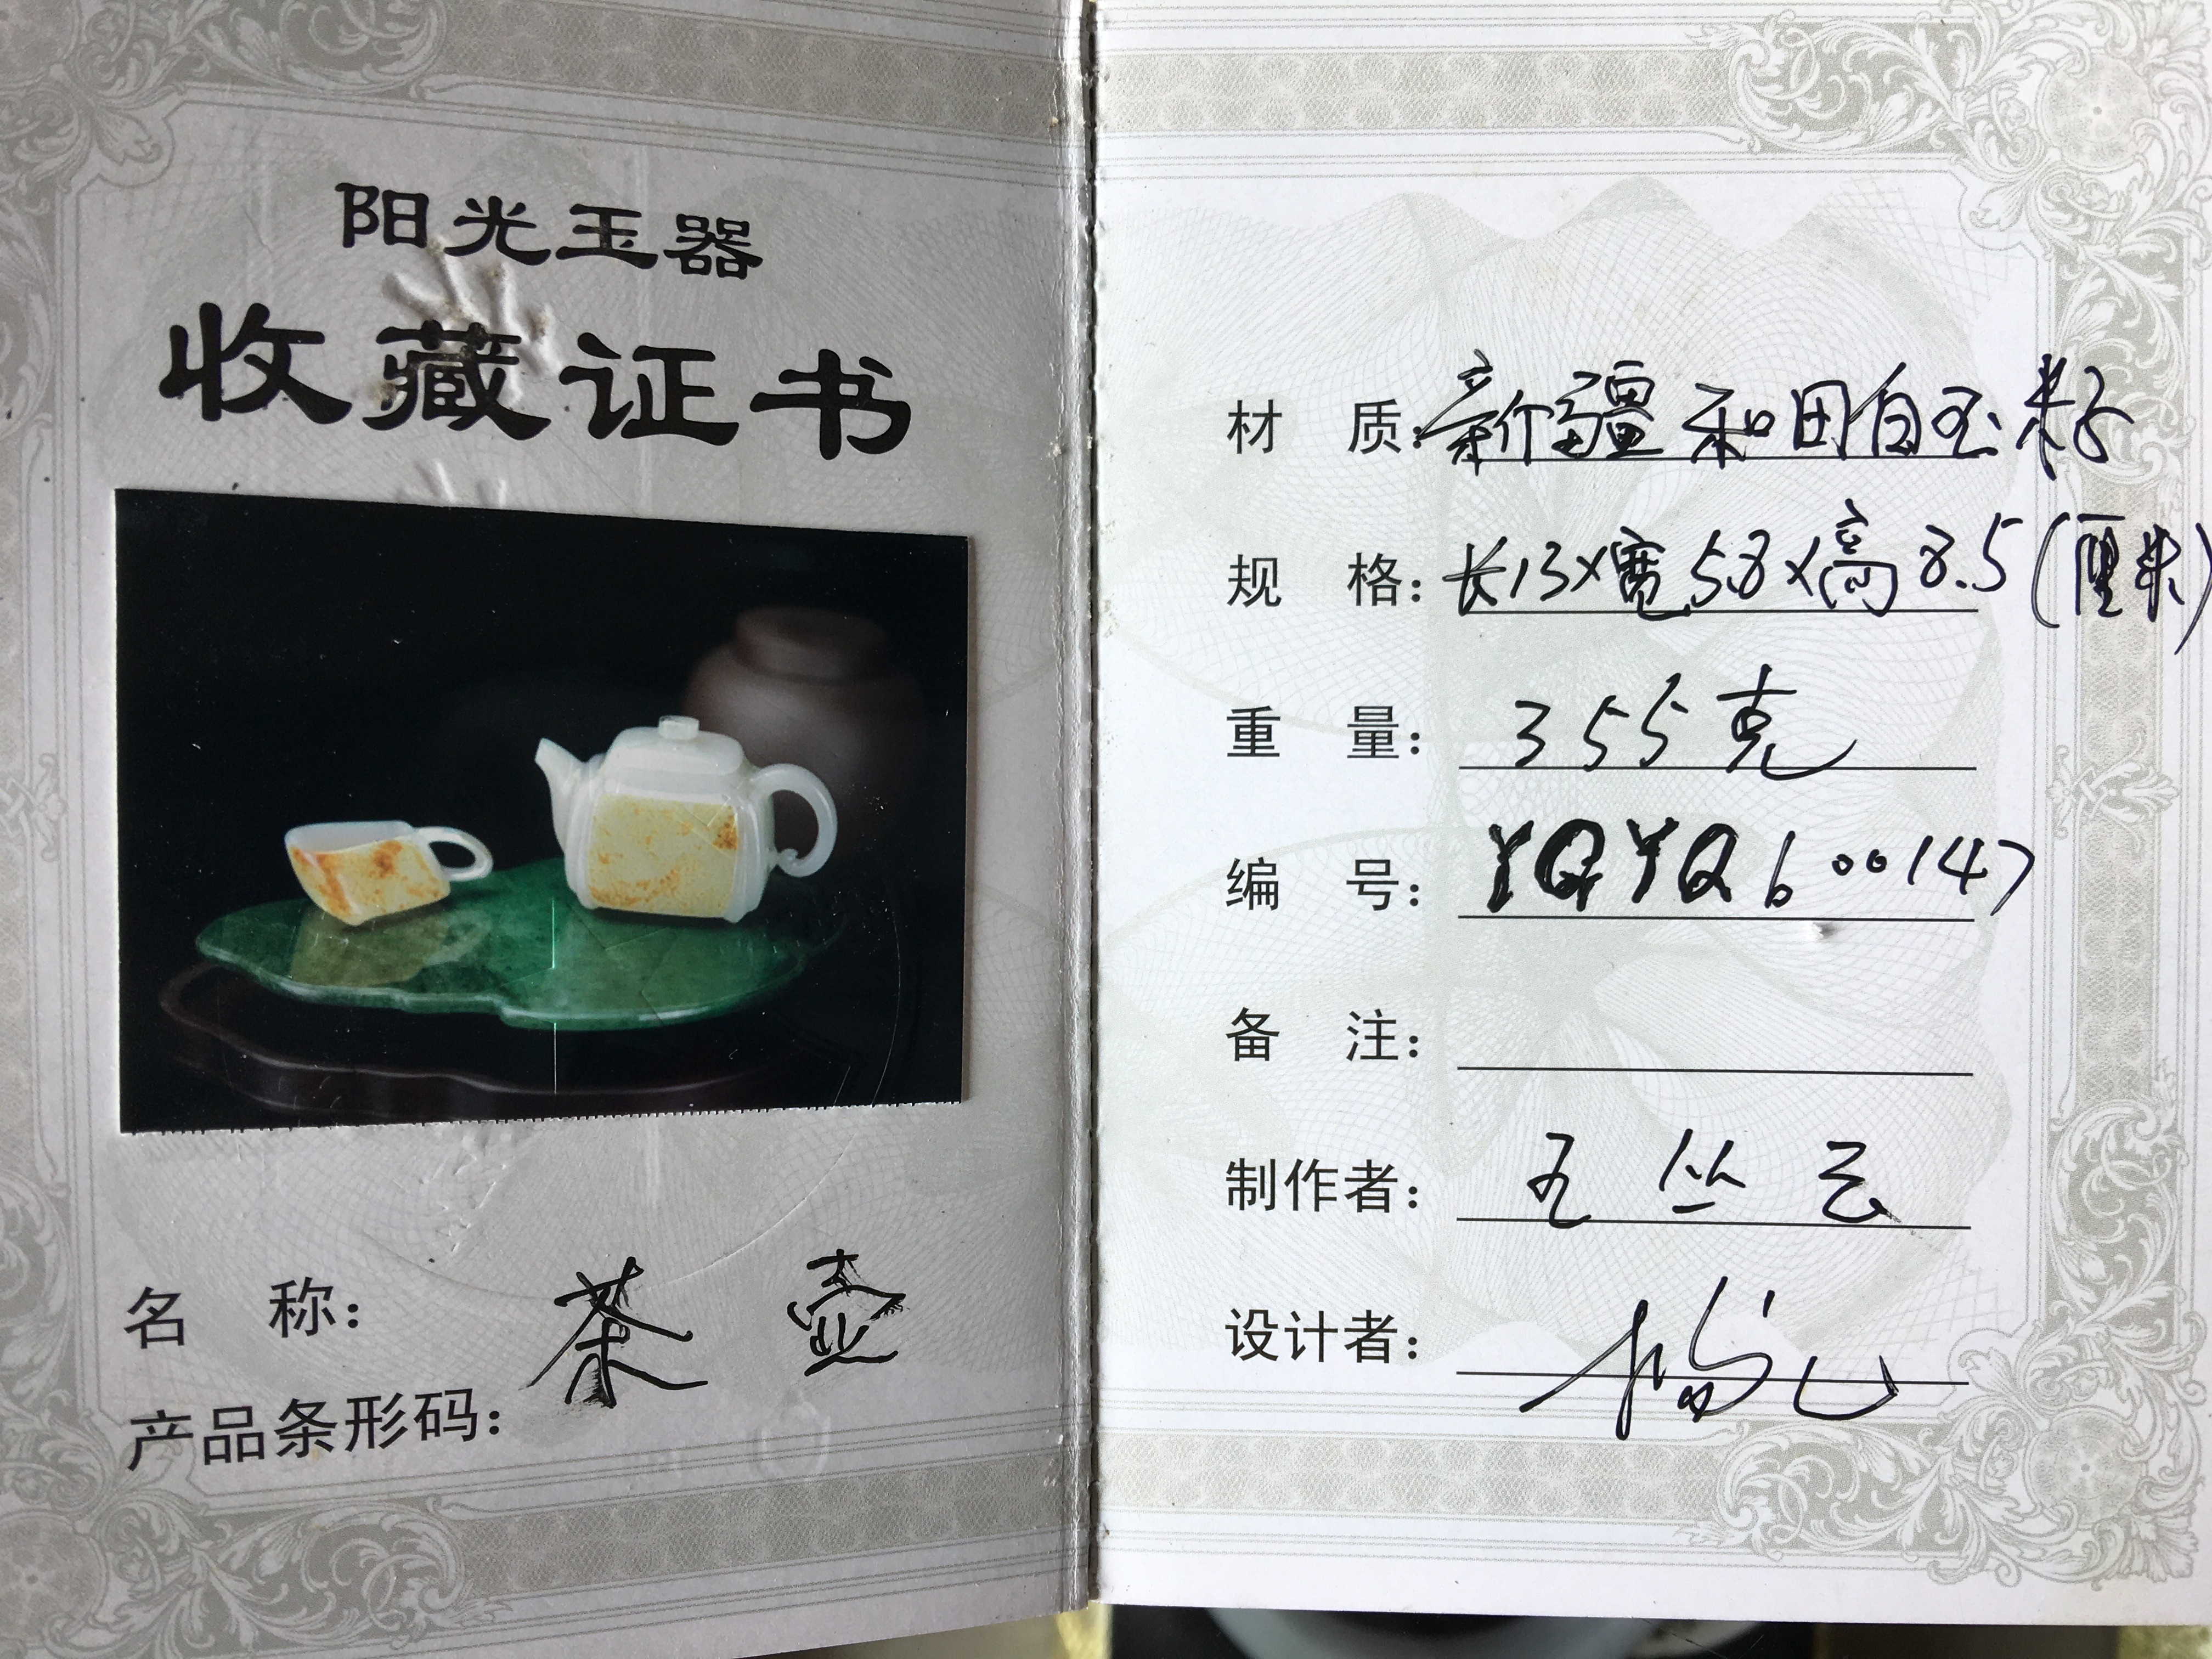 阳光玉器
收藏证书
名 称：茶 壶
产品条形码：
材 质：新疆和田白玉籽
规 格：长13×宽5.8×高8.5(厘米)
重 量：355克
编 号：YQYQb00147
备 注：
制作者：王丛云
设计者：